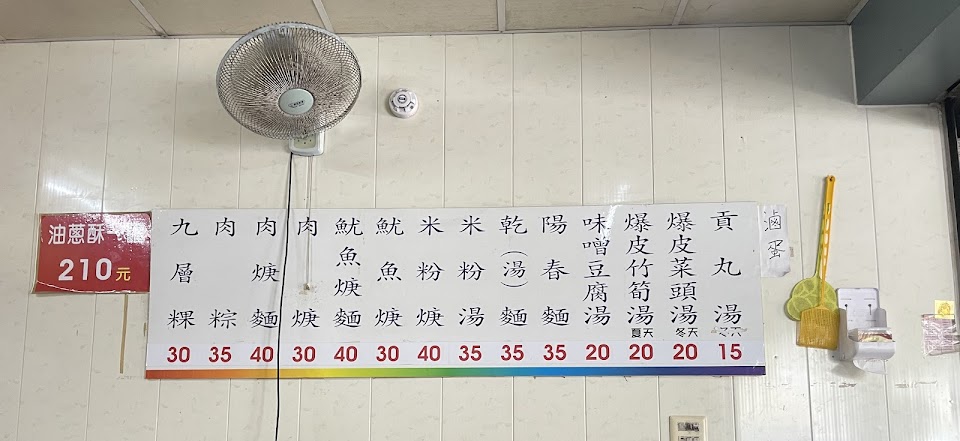 油蔥酥
210元
九層粿
30
肉粽
35
肉焿麵
40
肉焿
30
魷魚焿麵
40
魷魚焿
30
米粉焿
40
米粉湯
35
乾(湯)麵
35
陽春麵
35
味噌豆腐湯
20
爆皮竹筍湯
夏天
20
爆皮菜頭湯
冬天
20
貢丸湯
15
滷蛋